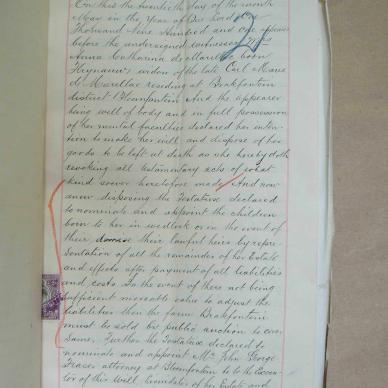 On this the twentieth day of the month
May in the Year of Our Lord One
Thousand Nine Hundred and One appeared
before the undersigned witnesses Mrs
Anna Catharina de Marillac born
widow of the late Carl Marie
de Marillac residing at Brakfontein
district Bloemfontein And the appearer
being well of body and in full possession
of her mental faculties declared her inten-
tion to make her will and dispose of her
goods to be left at death as she hereby doth
revoking all testamentary acts of what
kind soever heretofore made And now
anew disposing the Testatrix declared
to nominate and appoint the children
born to her in wedlock or in the event of
their demise their lawful heirs by repre-
sentation of all the remainder of her Estate
and effects after payment of all liabilities
and costs. In the event of there not being
sufficient moveable value to adjust the
liabilities then the farm Brakfontein
must be sold by public auction to cover
same. Further the Testatrix declared to
nominate and appoint Mr John George
Fraser attorney at Bloemfontein to be the Execu-
tor of this Will, of her Estate and